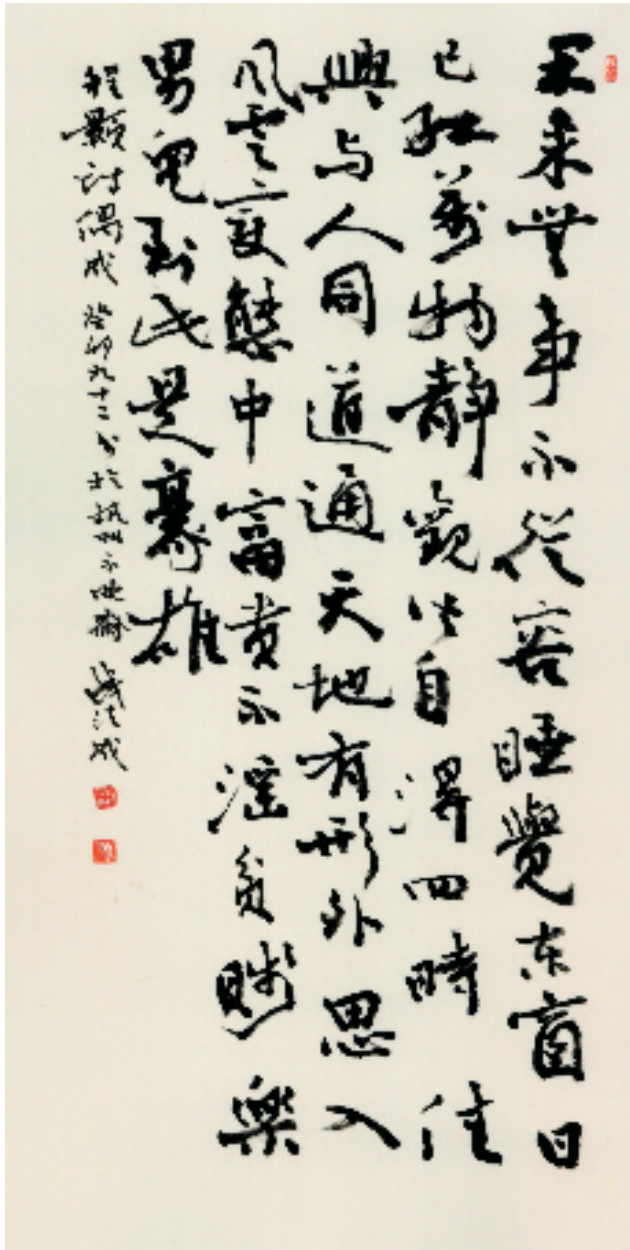 闲来無事不從容睡覺东窗日
已红萬物静觀皆自得四時佳
興与人同道通天地有形外思入
风雲變態中富贵不淫貧賤樂
男兒到此是豪雄
程颢诗偶成 癸卯九十二書於杭州不晚齋 钱法成